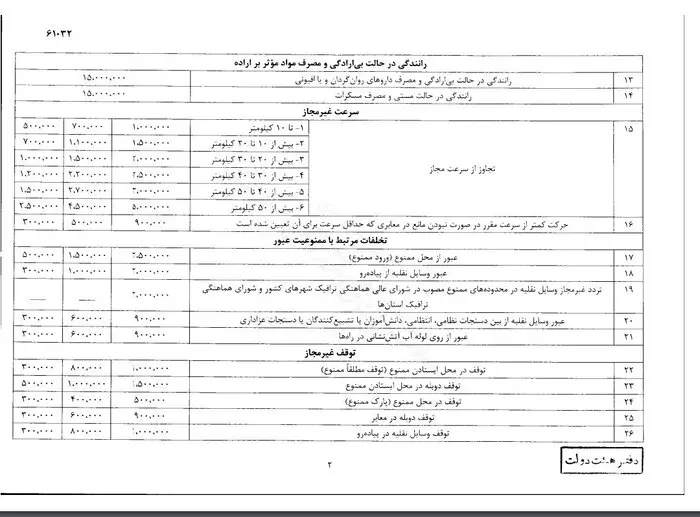 ۶۱۰۳۲
رانندگی در حالت بی‌ارادگی و مصرف مواد مؤثر بر اراده
۱۳ رانندگی در حالت بی‌ارادگی و مصرف داروهای روان‌گردان و یا افیونی ۱۵،۰۰۰،۰۰۰
۱۴ رانندگی در حالت مستی و مصرف مسکرات ۱۵،۰۰۰،۰۰۰
سرعت غیرمجاز
۱۵ تجاوز از سرعت مجاز
۱- تا ۱۰ کیلومتر ۱،۰۰۰،۰۰۰ ۷۰۰،۰۰۰ ۵۰۰،۰۰۰
۲- بیش از ۱۰ تا ۲۰ کیلومتر ۱،۵۰۰،۰۰۰ ۱،۱۰۰،۰۰۰ ۷۰۰،۰۰۰
۳- بیش از ۲۰ تا ۳۰ کیلومتر ۲،۰۰۰،۰۰۰ ۱،۵۰۰،۰۰۰ ۱،۰۰۰،۰۰۰
۴- بیش از ۳۰ تا ۴۰ کیلومتر ۲،۵۰۰،۰۰۰ ۲،۲۰۰،۰۰۰ ۱،۲۰۰،۰۰۰
۵- بیش از ۴۰ تا ۵۰ کیلومتر ۳،۰۰۰،۰۰۰ ۲،۷۰۰،۰۰۰ ۱،۵۰۰،۰۰۰
۶- بیش از ۵۰ کیلومتر ۵،۰۰۰،۰۰۰ ۴،۵۰۰،۰۰۰ ۲،۵۰۰،۰۰۰
۱۶ حرکت کمتر از سرعت مقرر در صورت نبودن مانع در معابری که حداقل سرعت برای آن تعیین شده است ۹۰۰،۰۰۰ ۵۰۰،۰۰۰ ۳۰۰،۰۰۰
تخلفات مرتبط با ممنوعیت عبور
۱۷ عبور از محل ممنوع (ورود ممنوع) ۲،۵۰۰،۰۰۰ ۱،۵۰۰،۰۰۰ ۵۰۰،۰۰۰
۱۸ عبور وسایل نقلیه از پیاده‌رو ۲،۰۰۰،۰۰۰ ۱،۰۰۰،۰۰۰ ۳۰۰،۰۰۰
۱۹ تردد غیرمجاز وسایل نقلیه در محدوده‌های ممنوع مصوب در شورای عالی هماهنگی ترافیک شهرهای کشور و شورای هماهنگی ۲،۰۰۰،۰۰۰ — —
ترافیک استان‌ها
۲۰ عبور وسایل نقلیه از بین دستجات نظامی، انتظامی، دانش‌آموزان یا تشییع‌کنندگان یا دستجات عزاداری ۹۰۰،۰۰۰ ۶۰۰،۰۰۰ ۳۰۰،۰۰۰
۲۱ عبور از روی لوله آب آتش‌نشانی در راه‌ها ۹۰۰،۰۰۰ ۶۰۰،۰۰۰ ۳۰۰،۰۰۰
توقف غیرمجاز
۲۲ توقف در محل ایستادن ممنوع (توقف مطلقاً ممنوع) ۱،۰۰۰،۰۰۰ ۸۰۰،۰۰۰ ۳۰۰،۰۰۰
۲۳ توقف دوبله در محل ایستادن ممنوع ۱،۵۰۰،۰۰۰ ۱،۰۰۰،۰۰۰ ۵۰۰،۰۰۰
۲۴ توقف در محل ممنوع (پارک ممنوع) ۵۰۰،۰۰۰ ۴۰۰،۰۰۰ ۳۰۰،۰۰۰
۲۵ توقف دوبله در معابر ۹۰۰،۰۰۰ ۶۰۰،۰۰۰ ۳۰۰،۰۰۰
۲۶ توقف وسایل نقلیه در پیاده‌رو ۱،۰۰۰،۰۰۰ ۸۰۰،۰۰۰ ۳۰۰،۰۰۰
دفتر هیئت دولت
۲